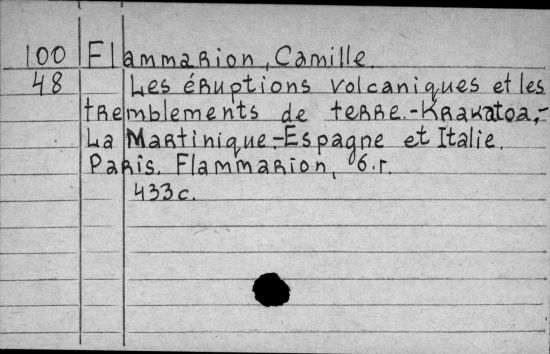 100 Flammarion, Camille.
48 Les éruptions volcaniques et les
tremblements de terre.-Krakatoa,-
La Martinique,-Espagne et Italie.
Paris. Flammarion, б.г.
433с.